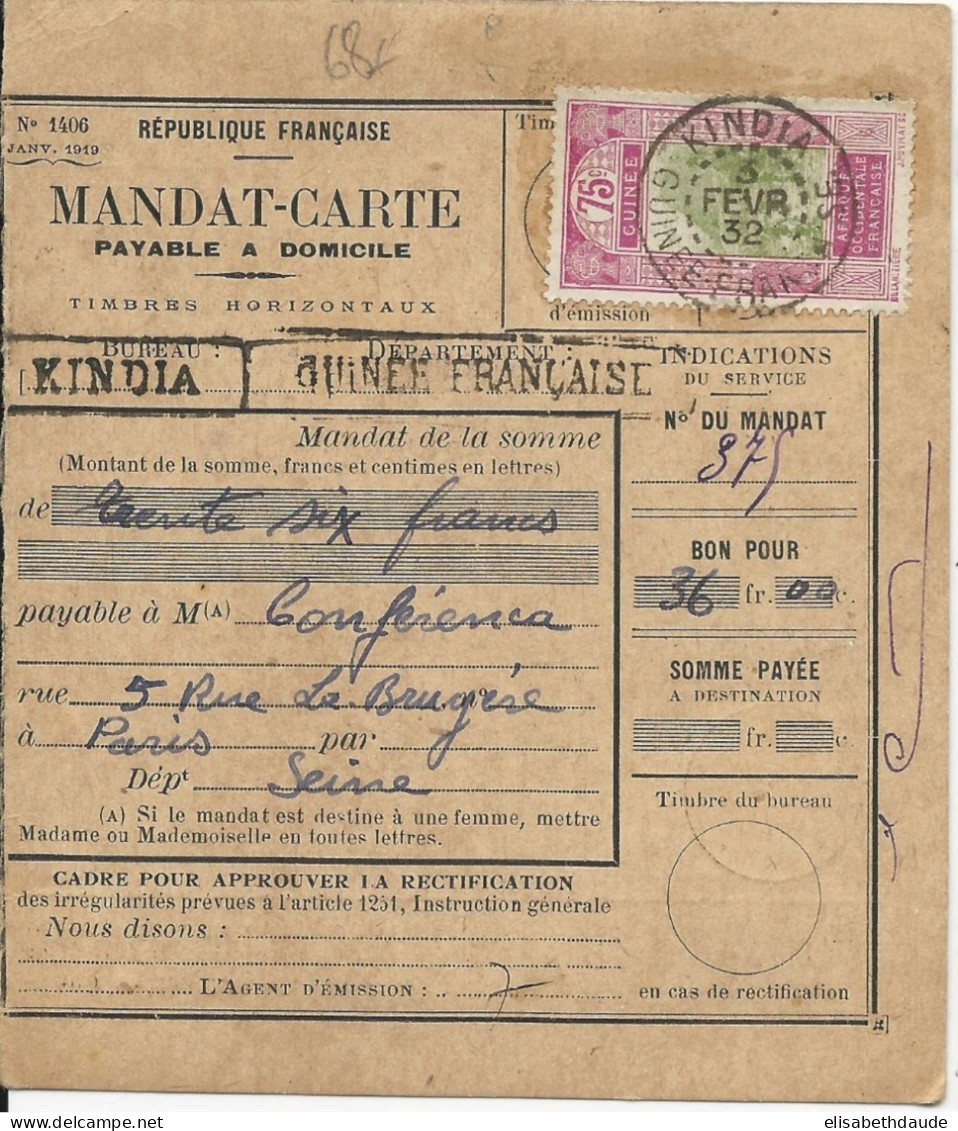 68
Nº 1406
JANV. 1919
RÉPUBLIQUE FRANÇAISE
MANDAT-CARTE
PAYABLE A DOMICILE
TIMBRES HORIZONTAUX
Tim
d'émission
75c
GUINÉE
AFRIQUE
OCCIDENTALE
FRANÇAISE
KINDIA
3
FEVR
32
GUINEE FRANÇSE
BUREAU :
DÉPARTEMENT :
KINDIA
GUINÉE FRANÇAISE
INDICATIONS
DU SERVICE
Nº DU MANDAT
375
Mandat de la somme
(Montant de la somme, francs et centimes en lettres)
de trente six francs
BON POUR
36 fr. 00 c.
payable à M(A) Conférencia
SOMME PAYÉE
A DESTINATION
fr. c.
rue 5 Rue La Bruyére nº
à Paris par
Dépt Seine
(A) Si le mandat est destiné à une femme, mettre
Madame ou Mademoiselle en toutes lettres.
Timbre du bureau
CADRE POUR APPROUVER LA RECTIFICATION
des irrégularités prévues à l'article 1251, Instruction générale
Nous disons :
L'AGENT D'ÉMISSION :
en cas de rectification
elisabethdaude